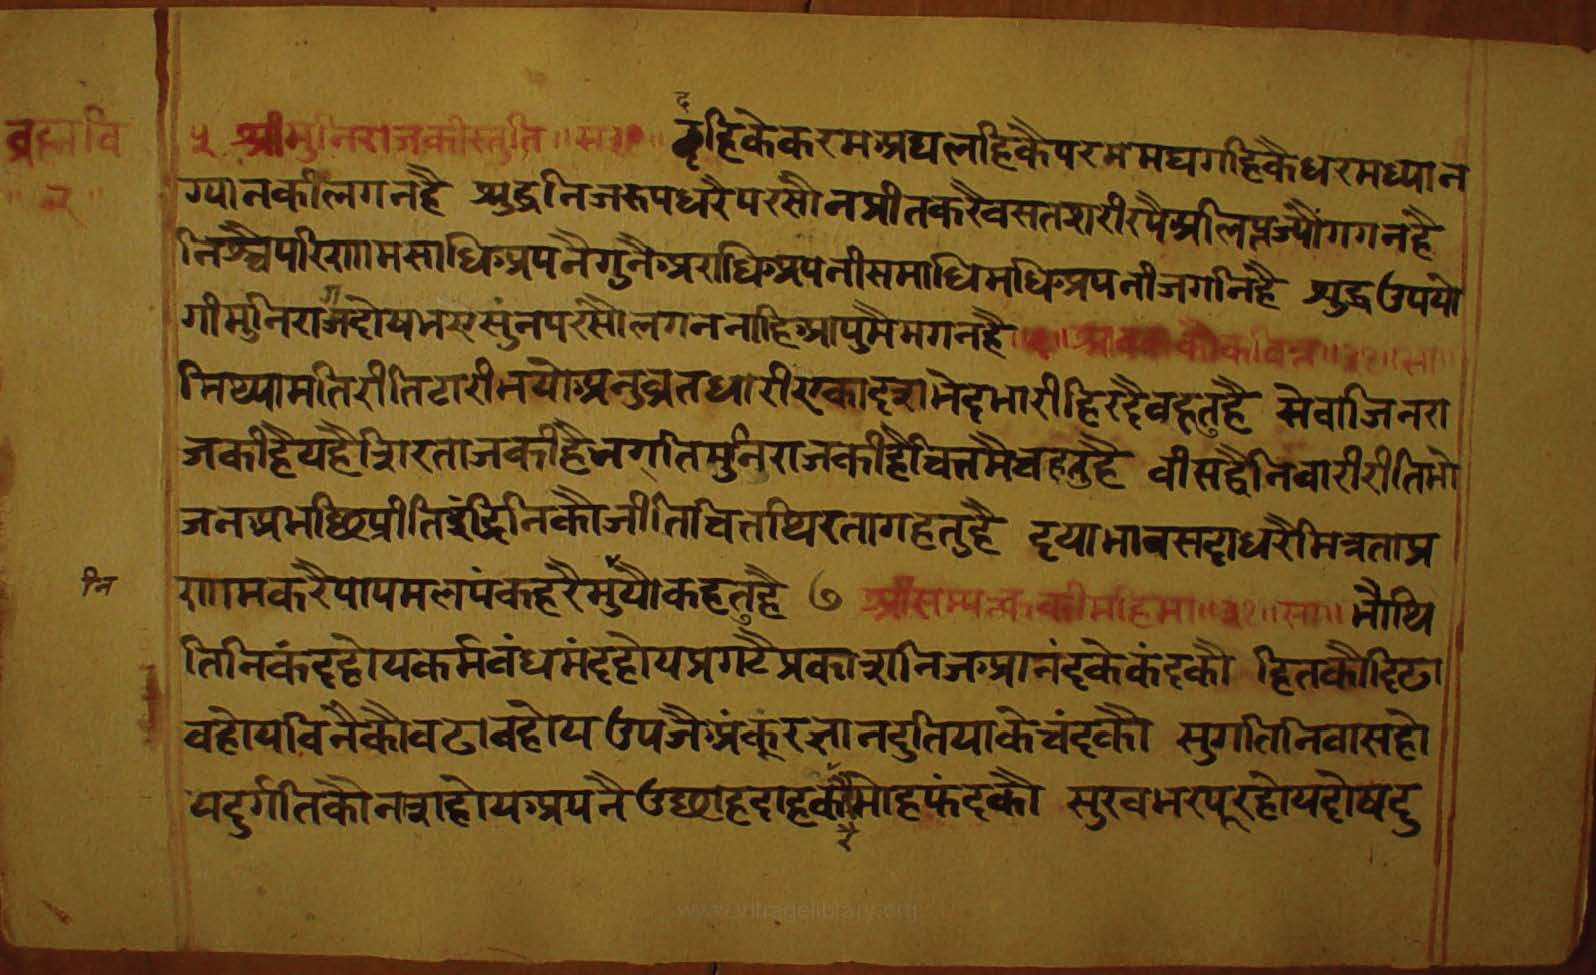 ब्रह्मवि
२
५ श्रीमुनिराजकीस्तुति ॥स३१॥ दहिकेकरमअघलहिकैपरममघगहिकैधरमध्यान
ग्यानकीलगनहै शुद्धनिजरूपधरैपरसौनप्रीतकरैवसतशरीरपैअलिप्तज्यौंगगनहै
निश्चैपरिणामसाधिअपनैगुनैअराधिअपनीसमाधिमधिअपनीजगनिहै शुद्धउपयो
गीमुनिराजहोयभएसुंनपरसौलगननाहिआपुमैमगनहै ॥६॥ श्रावककौकवित्त ॥३१॥सा
मिथ्यामतिरीतिटारीभयोअनुव्रतधारीएकादशभेदभारीहिरदैवहतुहै सेवाजिनरा
जकीहैयहैशिरताजकीहैभगतिमुनिराजकीहैचित्तमैचहतुहै वीसद्वैनिवारीरीतिभो
जनअभछिप्रीतिइंद्रिनिकौजीतिचित्तथिरतागहतुहै दयाभावसदाधरैमित्रताप्र
णामकरैपापमलपंकहरैमुंयौकहतुहै ७ श्रीसम्यत्ककीमहिमा॥३१॥सा॥ भौथि
तिनिकंदहोयकर्मबंधमंदहोयप्रगटैप्रकाशनिजआनंदकेकंदकौ हितकौदिठा
वहोयविनैकौवठावहोय उपजैअंकूरज्ञानदुतियाकेचंदकौ सुगतिनिवासहो
यदुर्गतिकौनशहोयअपनै उछाहदाहकरैमोहफंदकौ सुखभरपूरहोयदोषदु